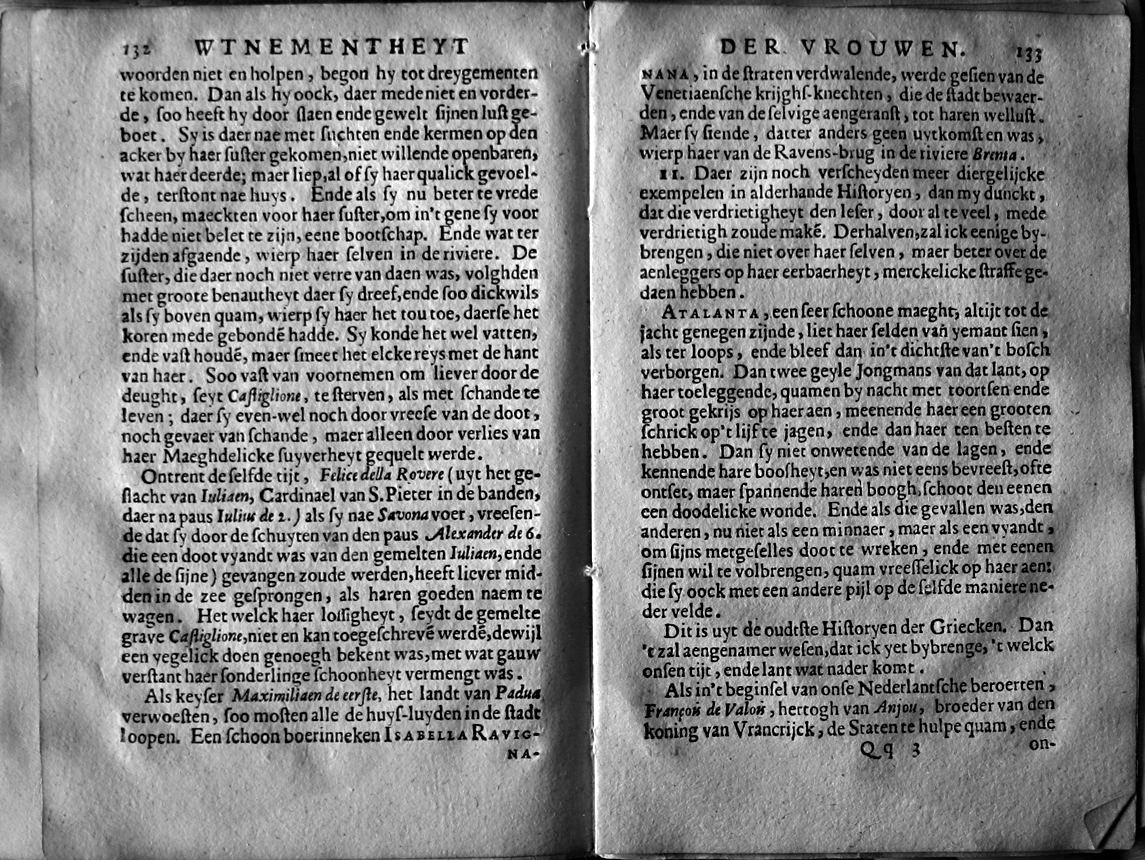 132 WTNEMENTHEYT
woorden niet en holpen, begon hy tot dreygementen
te komen. Dan als hy oock, daer mede niet en vorder-
de, ſoo heeft hy door ſlaen ende gewelt ſijnen luſt ge-
boet. Sy is daer nae met ſuchten ende kermen op den
acker by haer ſuſter gekomen, niet willende openbaren,
wat haer deerde; maer liep, al of ſy haer qualick gevoel-
de, terſtont nae huys. Ende als ſy nu beter te vrede
ſcheen, maeckten voor haer ſuſter, om in't gene ſy voor
hadde niet belet te zijn, eene bootſchap. Ende wat ter
zijden afgaende, wierp haer ſelven in de riviere. De
ſuſter, die daer noch niet verre van daen was, volghden
met groote benautheyt daer ſy dreef, ende ſoo dickwils
als ſy boven quam, wierp ſy haer het tou toe, daerſe het
koren mede gebondē hadde. Sy konde het wel vatten,
ende vaſt houdē, maer ſmeet het elcke reys met de hant
van haer. Soo vaſt van voornemen om liever door de
deught, ſeyt Caſtiglione, te ſterven, als met ſchande te
leven; daer ſy even-wel noch door vreeſe van de doot,
noch gevaer van ſchande, maer alleen door verlies van
haer Maeghdelicke ſuyverheyt gequelt werde.
Ontrent de ſelfde tijt, Felice della Rovere (uyt het ge-
ſlacht van Iuliaen, Cardinael van S. Pieter in de banden,
daer na paus Iulius de 2.) als ſy nae Savona voer, vreeſen-
de dat ſy door de ſchuyten van den paus Alexander de 6.
die een doot vyandt was van den gemelten Iuliaen, ende
alle de ſijne) gevangen zoude werden, heeft liever mid-
den in de zee geſprongen, als haren goeden naem te
wagen. Het welck haer loſſigheyt, ſeydt de gemelte
grave Caſtiglione, niet en kan toegeſchrevē werdē, dewijl
een yegelick doen genoegh bekent was, met wat gauw
verſtant haer ſonderlinge ſchoonheyt vermengt was.
Als keyſer Maximiliaen de eerſte, het landt van Padua
verwoeſten, ſoo moſten alle de huyſ-luyden in de ſtadt
loopen. Een schoon boerinneken ISABELLA RAVIG-
NA-
DER VROUWEN. 133
NANA, in de ſtraten verdwalende, werde geſien van de
Venetiaenſche krijghſ-knechten, die de ſtadt bewaer-
den, ende van de ſelvige aengeranſt, tot haren welluſt.
Maer ſy ſiende, datter anders geen uytkomſt en was,
wierp haer van de Ravens-brug in de riviere Brenta.
11. Daer zijn noch verſcheyden meer diergelijcke
exempelen in alderhande Hiſtoryen, dan my dunckt,
dat die verdrietigheyt den leſer, door al te veel, mede
verdrietigh zoude makē. Derhalven, zal ick eenige by-
brengen, die niet over haer ſelven, maer beter over de
aenleggers op haer eerbaerheyt, merckelicke ſtraffe ge-
daen hebben.
ATALANTA, een ſeer ſchoone maeght, altijt tot de
jacht genegen zijnde, liet haer ſelden van yemant ſien,
als ter loops, ende bleef dan in't dichtſte van't boſch
verborgen. Dan twee geyle Jongmans van dat lant, op
haer toeleggende, quamen by nacht met toortſen ende
groot gekrijs op haer aen, meenende haer een grooten
ſchrick op't lijf te jagen, ende dan haer ten beſten te
hebben. Dan ſy niet onwetende van de lagen, ende
kennende hare boosheyt, en was niet eens bevreeſt, ofte
ontſet, maer ſpannende haren boogh, ſchoot den eenen
een doodelicke wonde. Ende als die gevallen was, den
anderen, nu niet als een minnaer, maer als een vyandt,
om ſijns metgeſelles doot te wreken, ende met eenen
ſijnen wil te volbrengen, quam vreeſſelick op haer aen:
die ſy oock met een andere pijl op de ſelfde maniere ne-
der velde.
Dit is uyt de oudtſte Hiſtoryen der Griecken. Dan
't zal aengenamer weſen, dat ick yet bybrenge, 't welck
onſen tijt, ende lant wat nader komt.
Als in't beginſel van onſe Nederlantſche beroerten,
François de Valois, hertogh van Anjou, broeder van den
koning van Vrancrijck, de Staten te hulpe quam, ende
Qq 3 on-